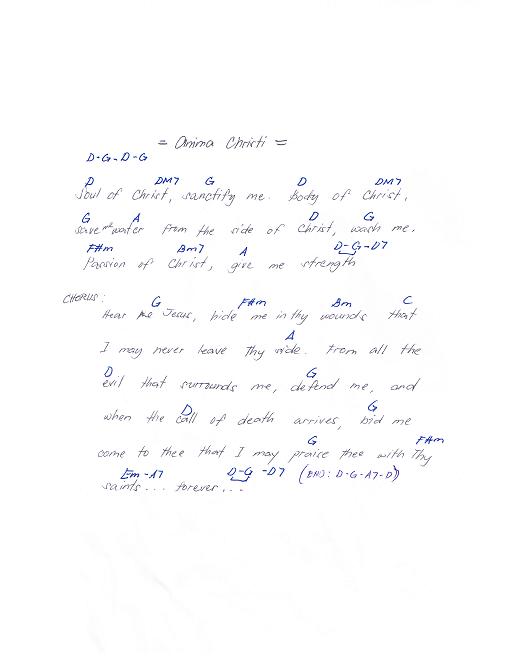 = Anima Christi =
D-G-D-G
D DM7 G D DM7
Soul of Christ, sanctify me. Body of Christ,
G A D G
save me water from the side of Christ, wash me.
F#m Bm7 A D-G-D7
Passion of Christ, give me strength
CHORUS: G F#m Bm C
Hear me Jesus, hide me in thy wounds that
A
I may never leave Thy side. From all the
D G
evil that surrounds me, defend me, and
D G
when the call of death arrives, bid me
G F#m
come to thee that I may praise thee with Thy
Em-A7 D-G-D7 (END: D-G-A7-D)
saints... forever...